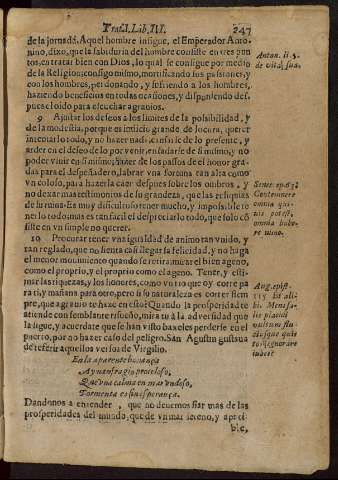 Trat.I.Lib.III. 247
de la jornada. Aquel hombre insigne, el Emperador Anto-
nino, dixo, que la sabiduria del hombre consiste en tres pun
tos, en tratar bien con Dios, lo qual se consigue por medio
de la Religion: consigo mismo, mortificando sus passiones, y
con los hombres, perdonando, y sufriendo a los hombres,
haziendo beneficios en todas ocasiones, y disponiendo des-
pues el oido para escuchar agravios.
9 Ajustar los deseos a los limites de la possibilidad, y
de la modestia, porque es indicio grande de locura, querer
intentarlo todo, y no hazer nada: cansarse de lo presente, y
arder en el deseo de lo por venir: enfadarse de si mismo, y no
poder vivir en si mismo; hazer de los passos de el honor gra-
das para el despeñadero, labrar vna fortuna tan alta como
vn coloso, para hazerla caer despues sobre los ombros, y
no dexar mas testimonios de su grandeza, que las reliquias
de su ruina. Es muy dificultoso tener mucho, y impossible te
nerlo todo: mas es tan facil el despreciarlo todo, que solo cõ
siste en vn simple no querer.
10 Procurar tener vna igualdad de animo tan vnido, y
tan reglado, que no sienta casi llegar la felicidad, y no haga
el menor movimiento quando se retira: mirar el bien ageno,
como el proprio, y el proprio como el ageno. Tener, y esti-
mar las riquezas, y los honores, como vn rio que oy corre pa
ra ti, y mañana para otro, pero si su naturaleza es correr siem
pre, que agravio te haze en esto? Quando la prosperidad te
atiende con semblante risueño, mira tu à la adversidad que
la sigue, y acuerdate que se han visto baxeles perderse en el
puerto, por no hazer caso del peligro. San Agustin gustava
de referir aquellos versos de Virgilio.
En la aparente bonança
Ay naufragio proceloso,
Que vna calma en mar vndoso,
Tormenta es sin esperança.
Dandonos a entender, que no devemos fiar mas de las
prosperidades del mundo, que de vn mar sereno, y apaci-
ble,
Anton. li 5.
de vita sua.
Senec. ep. 63.
Contemnere
omnia qui-
vis potest,
omnia habe-
re nemo.
Aug. epist.
113